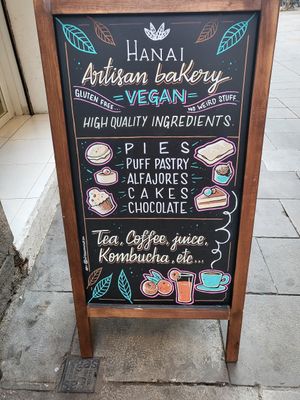 HANAI
Artisan baKery
GLUTEN FREE...
VEGAN
NO WEIRD STUFF...
HIGH QUALITY INGREDIENTS.
PIES
PUFF PASTRY
ALFAJORES
CAKES
CHOCOLATE
Tea, Coffee, juice,
Kombucha, etc...